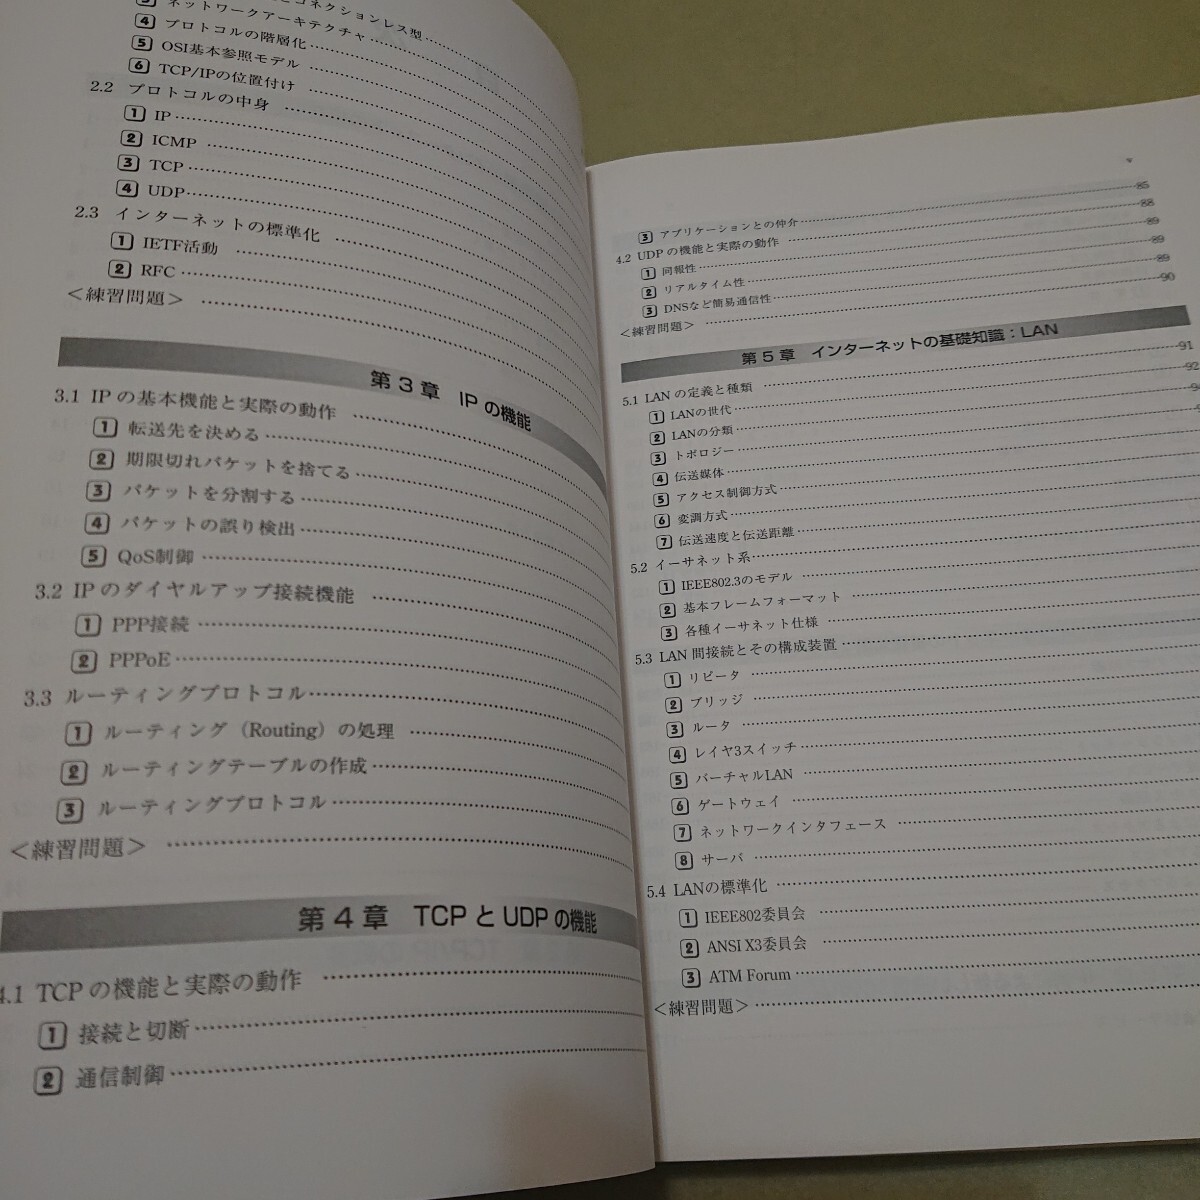 コネクションレス型
3 ネットワークアーキテクチャ
4 プロトコルの階層化
5 OSI基本参照モデル
6 TCP/IPの位置付け
2.2 プロトコルの中身
1 IP
2 ICMP
3 TCP
4 UDP
2.3 インターネットの標準化
1 IETF活動
2 RFC
＜練習問題＞
第3章 IPの機能
3.1 IPの基本機能と実際の動作
1 転送先を決める
2 期限切れパケットを捨てる
3 パケットを分割する
4 パケットの誤り検出
5 QoS制御
3.2 IPのダイヤルアップ接続機能
1 PPP接続
2 PPPoE
3.3 ルーティングプロトコル
1 ルーティング（Routing）の処理
2 ルーティングテーブルの作成
3 ルーティングプロトコル
＜練習問題＞
第4章 TCPとUDPの機能
4.1 TCPの機能と実際の動作
1 接続と切断
2 通信制御
v
3 アプリケーションとの仲介 85
4.2 UDPの機能と実際の動作 88
1 同報性 89
2 リアルタイム性 89
3 DNSなど簡易通信性 89
＜練習問題＞ 90
第5章 インターネットの基礎知識：LAN
5.1 LANの定義と種類 91
1 LANの世代 92
2 LANの分類
3 トポロジー
4 伝送媒体
5 アクセス制御方式
6 変調方式
7 伝送速度と伝送距離
5.2 イーサネット系
1 IEEE802.3のモデル
2 基本フレームフォーマット
3 各種イーサネット仕様
5.3 LAN間接続とその構成装置
1 リピータ
2 ブリッジ
3 ルータ
4 レイヤ3スイッチ
5 バーチャルLAN
6 ゲートウェイ
7 ネットワークインタフェース
8 サーバ
5.4 LANの標準化
1 IEEE802委員会
2 ANSI X3委員会
3 ATM Forum
＜練習問題＞